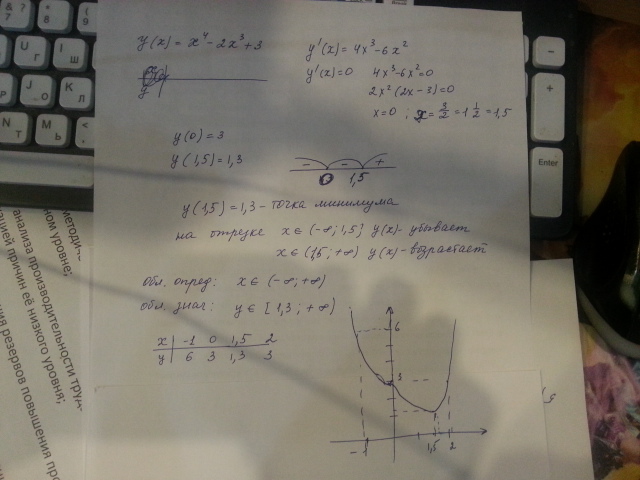 y(x) = x⁴ - 2x³ + 3
y'(x) = 4x³ - 6x²
y'(x) = 0 4x³ - 6x² = 0
2x² (2x - 3) = 0
x = 0 ; x = 3/2 = 1 1/2 = 1,5
y(0) = 3
y(1,5) = 1,3
- - +
0 1,5
y(1,5) = 1,3 - точка минимума
на отрезке x ∈ (-∞; 1,5] y(x) - убывает
x ∈ (1,5; +∞) y(x) - возрастает
обл. опред: x ∈ (-∞; +∞)
обл. знач: y ∈ [1,3; +∞)
x | -1 0 1,5 2
y | 6 3 1,3 3
6
3
-1 1,5 2
&7 ?
* 8
U Г
I Ш
J О
K Л
N Т
M Ь
<
-
+
Enter
ном уровне;
анализа производительности труд
ацией причин её низкого уровня;
ния резервов повышения про